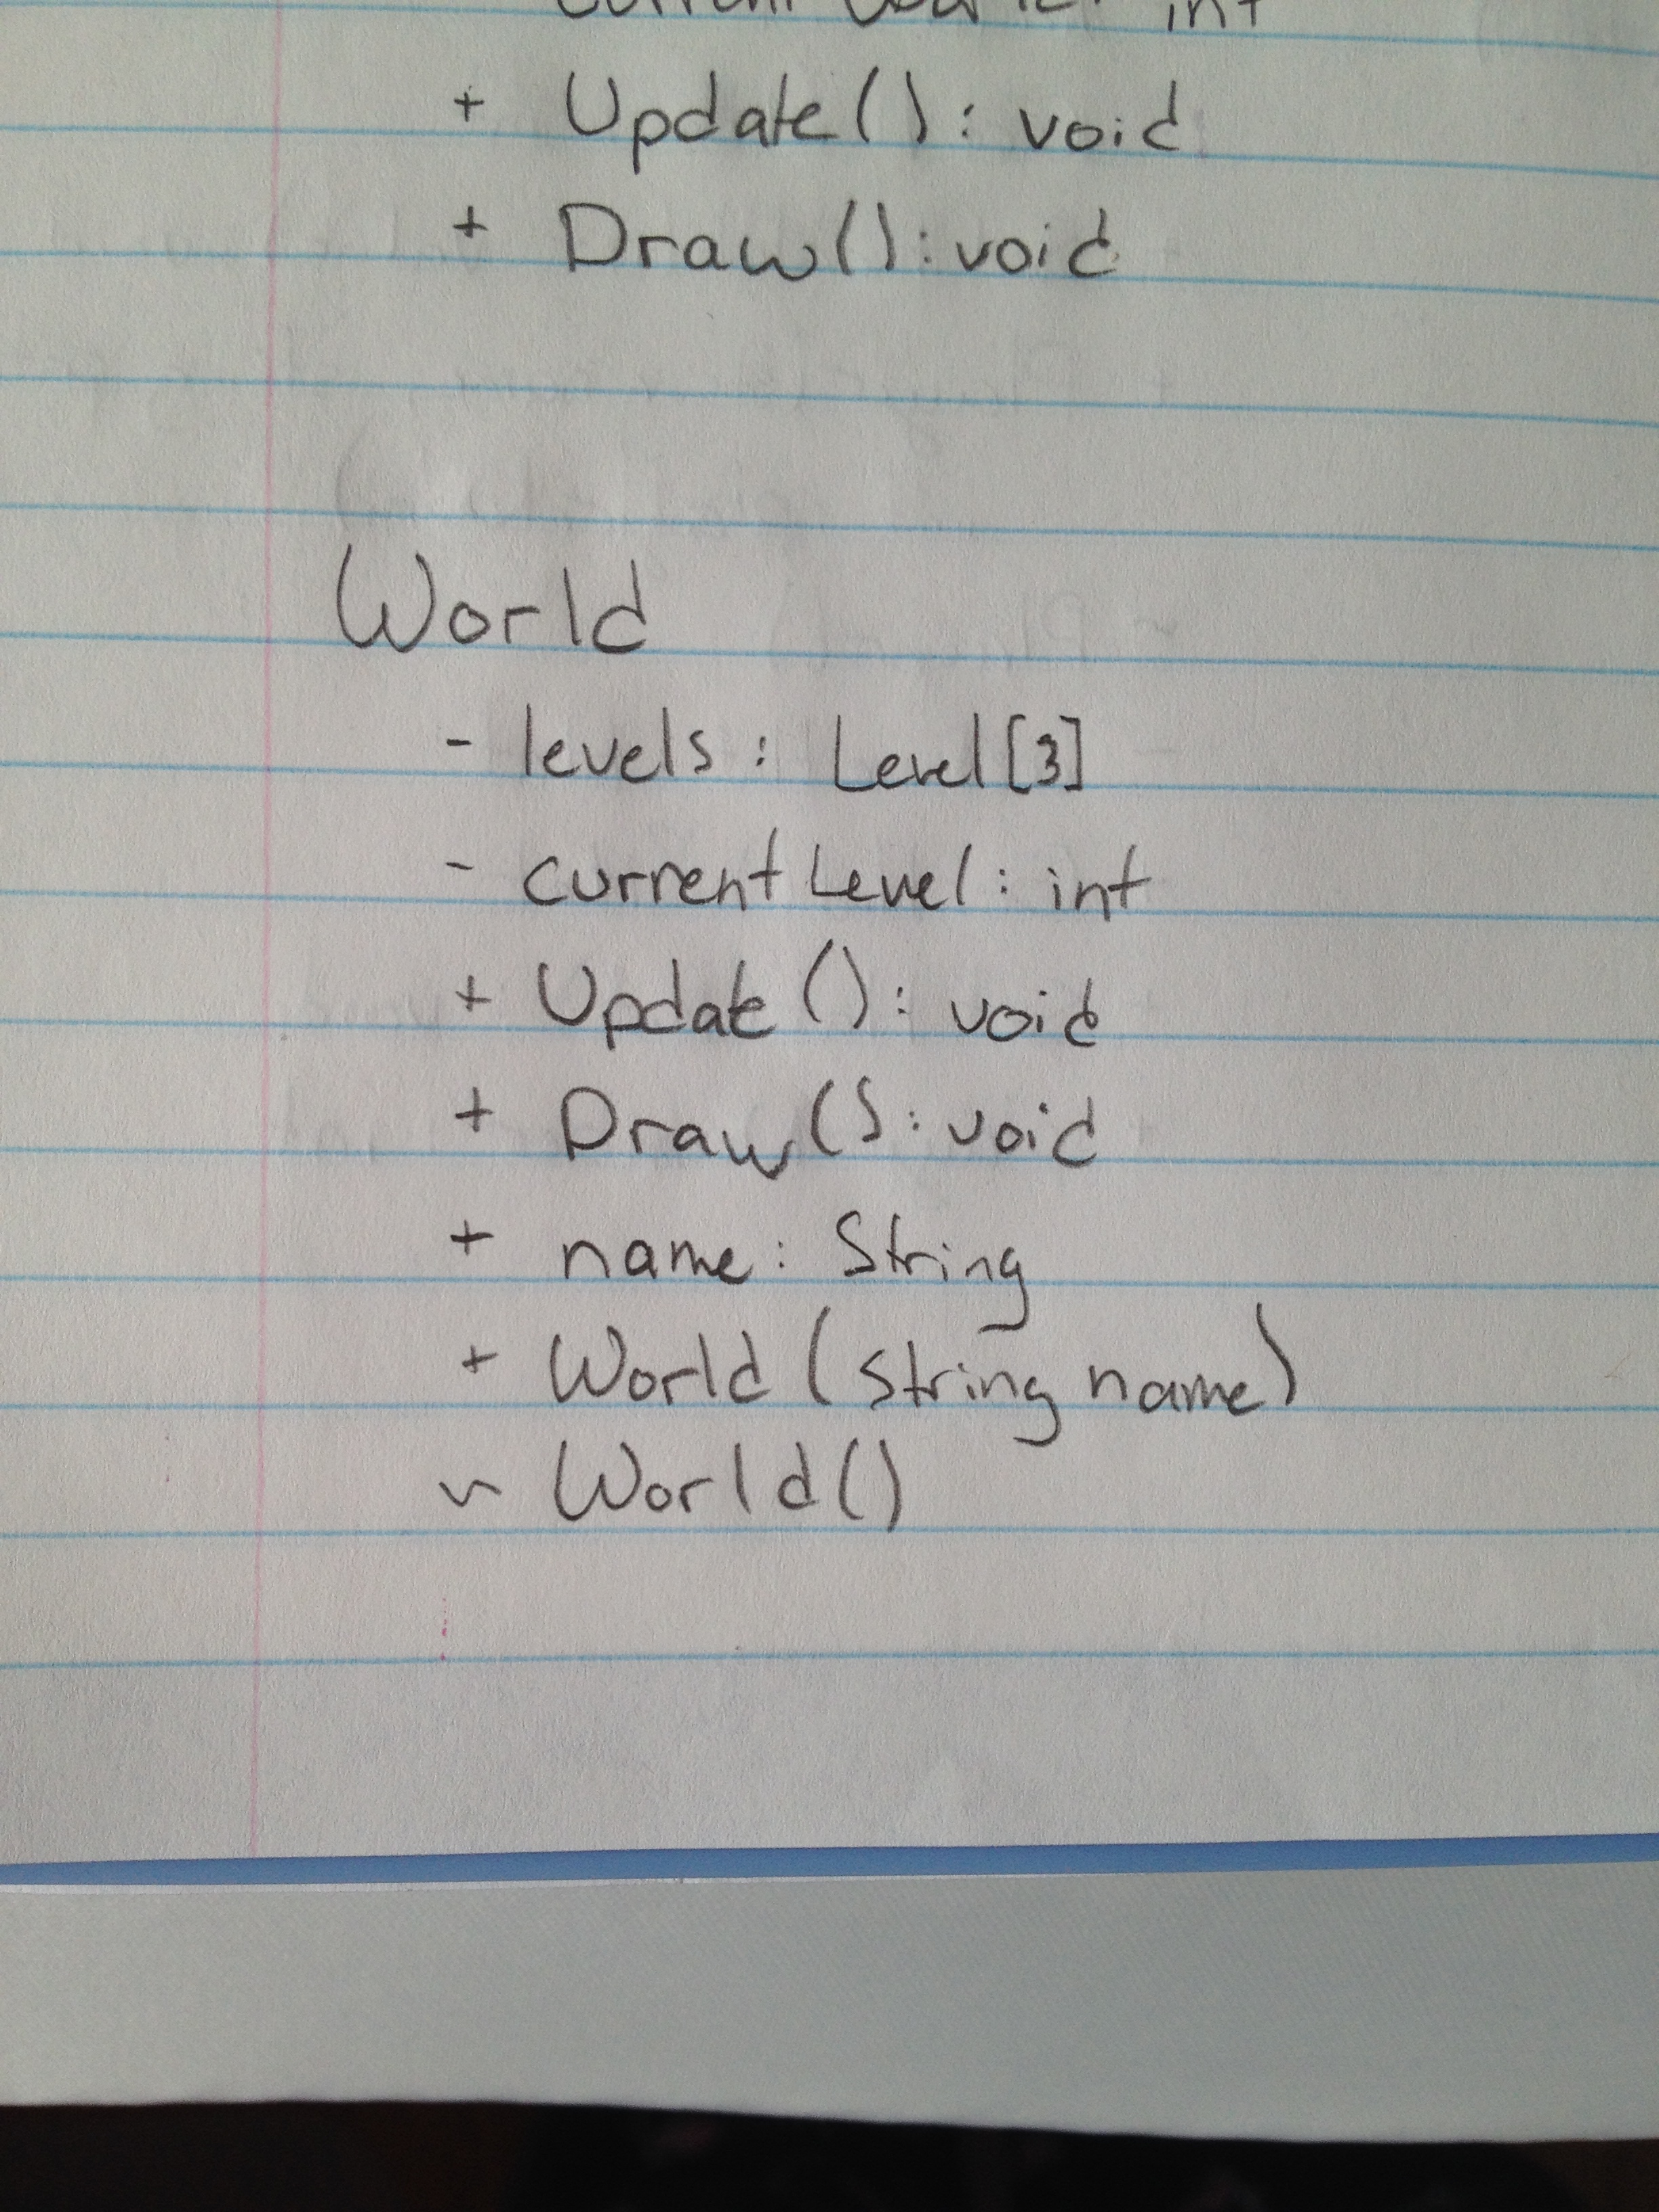 int
+ Update(): void
+ Draw(): void
World
- levels: Level[3]
- currentLevel: int
+ Update(): void
+ Draw(): void
+ name: String
+ World (string name)
~ World()